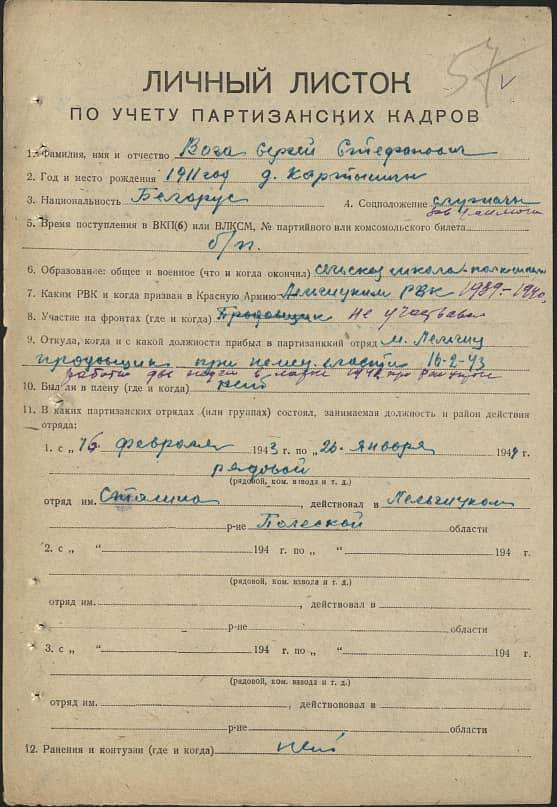 57 v
ЛИЧНЫЙ ЛИСТОК
ПО УЧЕТУ ПАРТИЗАНСКИХ КАДРОВ
1. Фамилия, имя и отчество Вога Сергей Стефанович
2. Год и место рождения 1911 год д. Картыничи
3. Национальность Беларус 4. Соцположение служащий
5. Время поступления в ВКП(б) или ВЛКСМ, № партийного или комсомольского билета
б/п.
6. Образование: общее и военное (что и когда окончил) сельская школа
7. Каким РВК и когда призван в Красную Армию Лельчицким РВК 1939-1940
8. Участие на фронтах (где и когда) Продовщик не участвовал
9. Откуда, когда и с какой должности прибыл в партизанский отряд м. Лельчиц
продовщик при немец. власти 16-2-43
работал две недели в 1942 при
10. Был ли в плену (где и когда) нет
11. В каких партизанских отрядах (или группах) состоял, занимаемая должность и район действия
отряда:
1. с „16 февраля 1943 г. по „26 января 1944 г.
рядовой
(рядовой, ком. взвода и т. д.)
отряд им. Сталина, действовал в Лельчицком
р-не Полеской области
2. с „ “ 194 г. по „ “ 194 г.
(рядовой, ком. взвода и т. д.)
отряд им. , действовал в
р-не области
3. с „ “ 194 г. по „ “ 194 г.
(рядовой, ком. взвода и т. д.)
отряд им. , действовал в
р-не области
12. Ранения и контузии (где и когда) нет